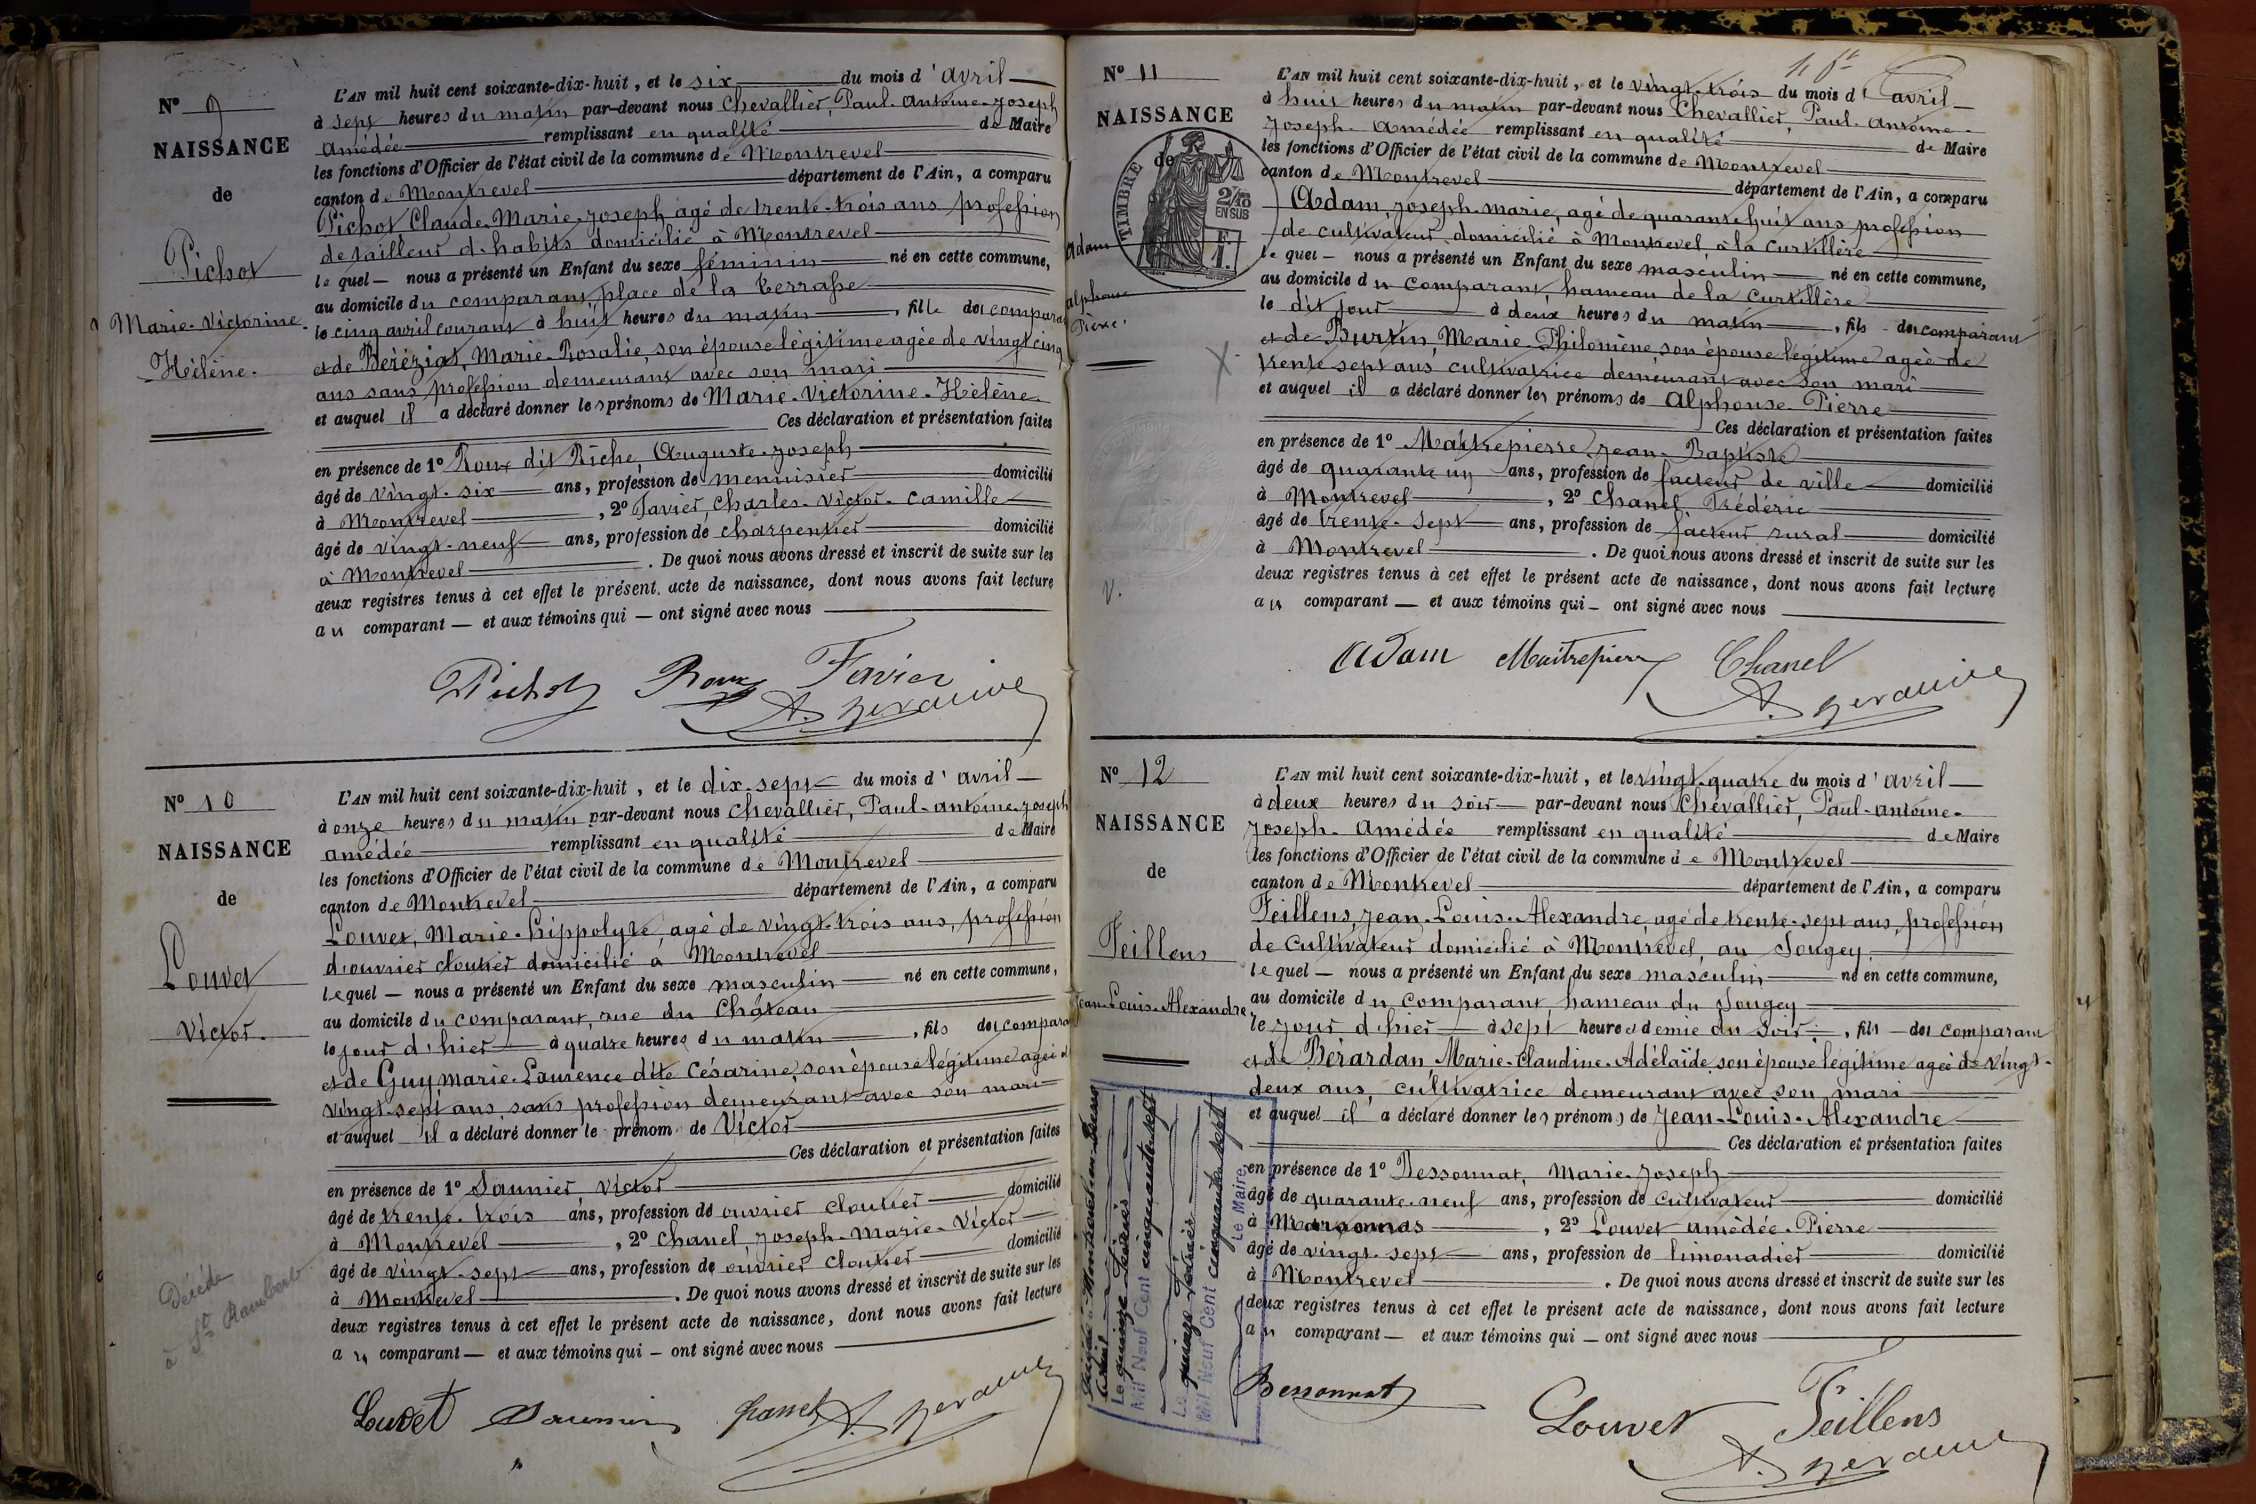 N° 9
NAISSANCE
de
Pichot
Marie-Victorine-
Hélène.
L'AN mil huit cent soixante-dix-huit, et le six du mois d'avril
à sept heures du matin par-devant nous Chevallier, Paul-Antoine-Joseph
Amédée remplissant en qualité de Maire
les fonctions d'Officier de l'état civil de la commune de Montrevel
canton de Montrevel département de l'Ain, a comparu
Pichot Claude-Marie-Joseph agé de trente-trois ans profession
de tailleur d'habits domicilié à Montrevel
le quel nous a présenté un Enfant du sexe féminin né en cette commune,
au domicile du comparant, place de la terrasse
le cinq avril courant à huit heures du matin, fille des compara
et de Béréziat, Marie-Rosalie, son épouse légitime agée de vingt cinq
ans sans profession demeurant avec son mari
et auquel il a déclaré donner les prénoms de Marie-Victorine-Hélène.
Ces déclaration et présentation faites
en présence de 1° Roux dit Riche, Auguste-Joseph
âgé de vingt-six ans, profession de menuisier domicilié
à Montrevel, 2° Favier, Charles-Victor-Camille
âgé de vingt-neuf ans, profession de charpentier domicilié
à Montrevel. De quoi nous avons dressé et inscrit de suite sur les
deux registres tenus à cet effet le présent acte de naissance, dont nous avons fait lecture
au comparant — et aux témoins qui — ont signé avec nous
Pichot Roux Favier
N° 10
NAISSANCE
de
Louvet
Victor.
L'AN mil huit cent soixante-dix-huit, et le dix-sept du mois d'avril
à onze heures du matin par-devant nous Chevallier, Paul-Antoine-Joseph
Amédée remplissant en qualité de Maire
les fonctions d'Officier de l'état civil de la commune de Montrevel
canton de Montrevel département de l'Ain, a comparu
Louvet, Marie-Hippolyte, agé de vingt-trois ans, profession
d'ouvrier cloutier domicilié à Montrevel
lequel — nous a présenté un Enfant du sexe masculin né en cette commune,
au domicile du comparant, rue du Château
le jour d'hier à quatre heures du matin, fils des compara
et de Guy Marie-Laurence dite Césarine, son épouse légitime agée d
vingt-sept ans, sans profession demeurant avec son mari
et auquel il a déclaré donner le prénom de Victor
Ces déclaration et présentation faites
en présence de 1° Saunier, Victor
âgé de trente-trois ans, profession de ouvrier cloutier domicilié
à Montrevel, 2° Chanel, Joseph-Marie-Victor
âgé de vingt-sept ans, profession de ouvrier cloutier domicilié
à Montrevel. De quoi nous avons dressé et inscrit de suite sur les
deux registres tenus à cet effet le présent acte de naissance, dont nous avons fait lecture
au comparant — et aux témoins qui — ont signé avec nous
Décédé
à St Rambert
Louvet Saunier Chanel
N° 11
NAISSANCE
de
TIMBRE
2/10
EN SUS
1 F.
Adam
Alphonse
Pierre.
L'AN mil huit cent soixante-dix-huit, et le vingt-trois du mois d'avril
à huit heures du matin par-devant nous Chevallier, Paul-Antoine-
Joseph-Amédée remplissant en qualité de Maire
les fonctions d'Officier de l'état civil de la commune de Montrevel
canton de Montrevel département de l'Ain, a comparu
Adam, Joseph-Marie, agé de quarante huit ans profession
de cultivateur, domicilié à Montrevel à la Curtillère
le quel — nous a présenté un Enfant du sexe masculin né en cette commune,
au domicile du comparant, hameau de la Curtillère
le dit jour à deux heures du matin, fils des comparant
et de Burtin, Marie-Philomène, son épouse légitime agée de
trente sept ans cultivatrice demeurant avec son mari
et auquel il a déclaré donner les prénoms de Alphonse-Pierre
Ces déclaration et présentation faites
en présence de 1° Maitrepierre, Jean-Baptiste
âgé de quarante un ans, profession de facteur de ville domicilié
à Montrevel, 2° Chanel, Frédéric
âgé de trente-sept ans, profession de facteur rural domicilié
à Montrevel. De quoi nous avons dressé et inscrit de suite sur les
deux registres tenus à cet effet le présent acte de naissance, dont nous avons fait lecture
au comparant — et aux témoins qui — ont signé avec nous
V.
Adam Maitrepierre Chanel
N° 12
NAISSANCE
de
Feillens
Jean-Louis-Alexandre
L'AN mil huit cent soixante-dix-huit, et le vingt-quatre du mois d'avril
à deux heures du soir par-devant nous Chevallier, Paul-Antoine-
Joseph-Amédée remplissant en qualité de Maire
les fonctions d'Officier de l'état civil de la commune de Montrevel
canton de Montrevel département de l'Ain, a comparu
Feillens, Jean-Louis-Alexandre, agé de trente-sept ans, profession
de cultivateur domicilié à Montrevel, au Sougey,
lequel — nous a présenté un Enfant du sexe masculin né en cette commune,
au domicile du comparant, hameau du Sougey
le jour d'hier à sept heures demie du soir, fils des comparant
et de Bérardan, Marie-Claudine-Adélaïde son épouse légitime agée de vingt-
deux ans, cultivatrice demeurant avec son mari
et auquel il a déclaré donner les prénoms de Jean-Louis-Alexandre
Ces déclaration et présentation faites
en présence de 1° Bessonnat, Marie-Joseph
âgé de quarante-neuf ans, profession de cultivateur domicilié
à Marsonnas, 2° Louvet Amédée-Pierre
âgé de vingt-sept ans, profession de limonadier domicilié
à Montrevel. De quoi nous avons dressé et inscrit de suite sur les
deux registres tenus à cet effet le présent acte de naissance, dont nous avons fait lecture
au comparant — et aux témoins qui — ont signé avec nous
Le quinze Février
Mil Neuf Cent cinquante sept
Le quinze Février
Mil Neuf Cent cinquante sept
Le Maire,
Bessonnat Louvet Feillens